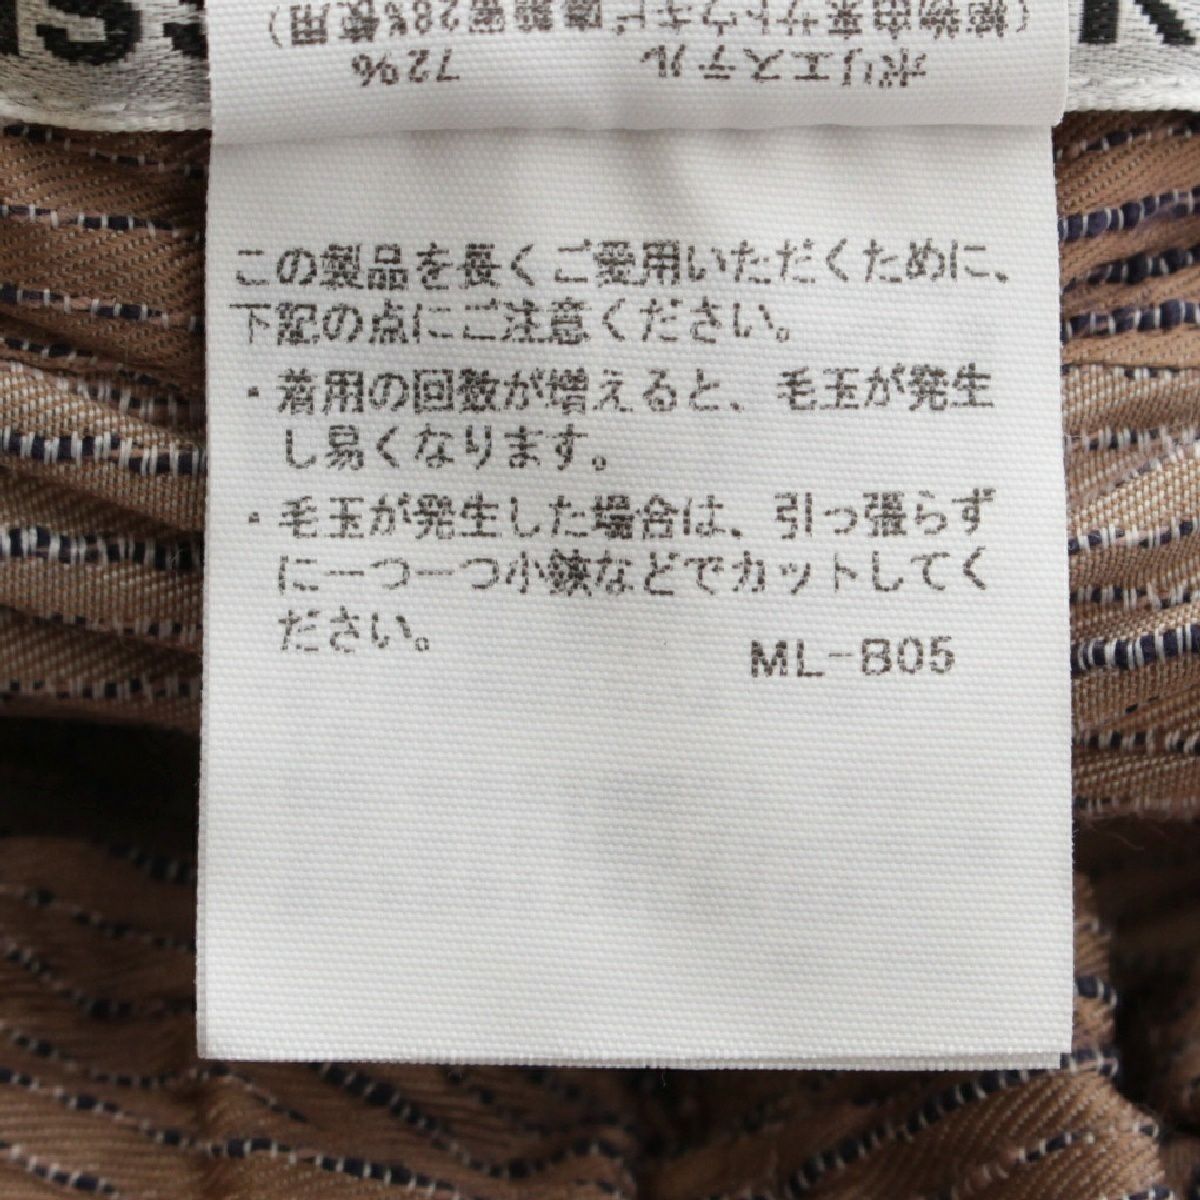 ポリエステル 72%
(植物由来サトウキビ廃糖蜜28%使用)
この製品を長くご愛用いただくために、
下記の点にご注意ください。
・着用の回数が増えると、毛玉が発生
し易くなります。
・毛玉が発生した場合は、引っ張らず
に一つ一つ小鋏などでカットしてく
ださい。
ML-B05